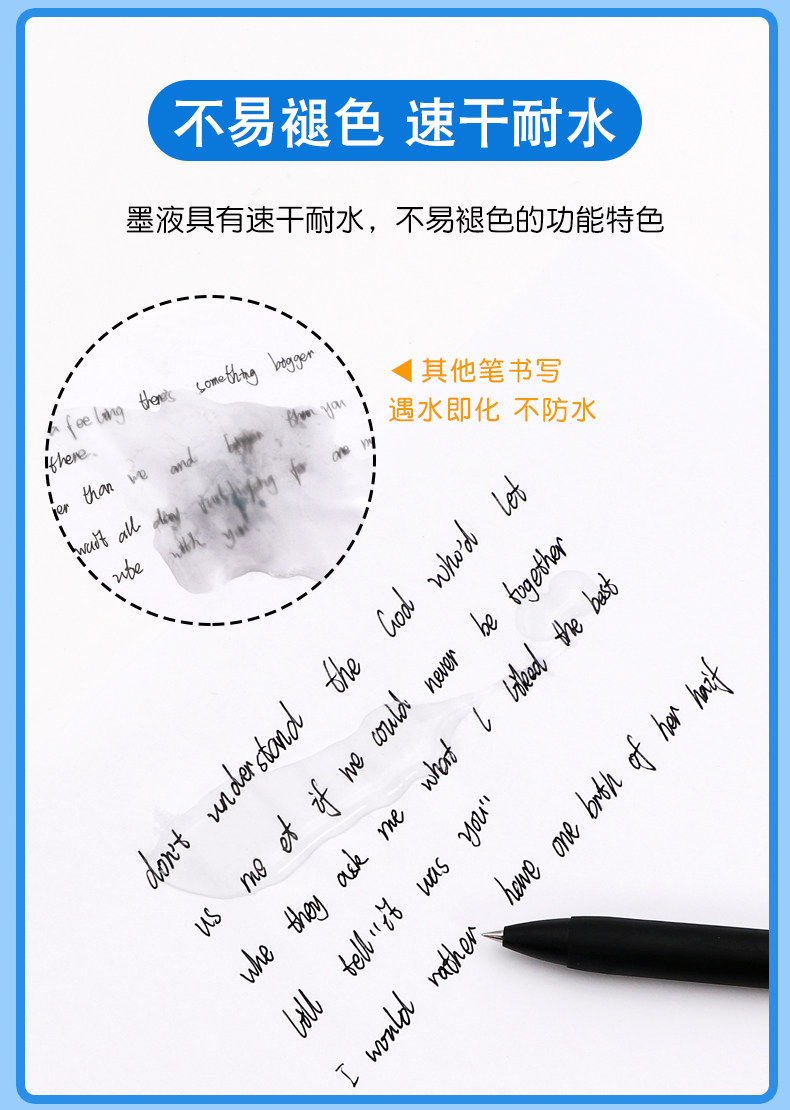 不易褪色 速干耐水
墨液具有速干耐水，不易褪色的功能特色
a feeling there's something bigger
there. than you
er than me and bigger
wait all day for one
with you
◀ 其他笔书写
遇水即化 不防水
don't understand the God who'd let
us me et if we could never be together
whe they ask me what I liked the best
bill tell "it was you"
I would rather have one brth of her haif